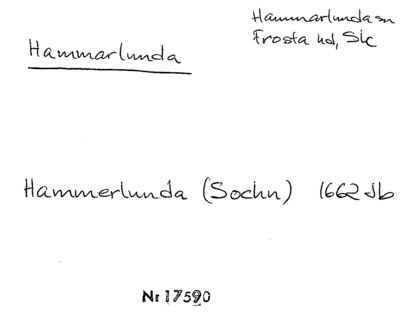 Hammarlunda
Hammarlunda sn
Frosta hd, Sk
Hammerlunda (Sochn) 1662 Jb
Nr 17590